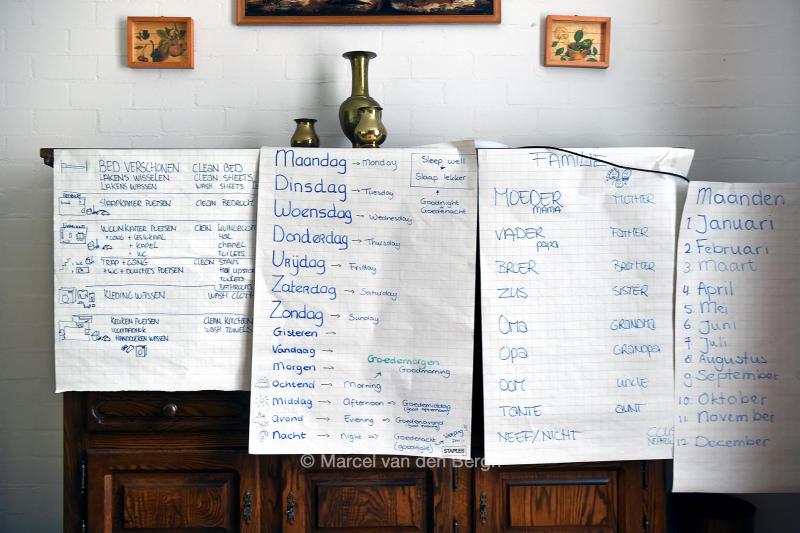 BED VERSCHONEN CLEAN BED
LAKENS WISSELEN CLEAN SHEETS
LAKENS WASSEN WASH SHEETS
SLAAPKAMER POETSEN CLEAN BEDROOM
WOONKAMER POETSEN CLEAN
+ KAPEL CHAPEL
+ WC TOILETS
TRAP + GANG CLEAN STAIRS
+ WC + DOUCHES POETSEN
TOILETS
BATHROOM
KLEDING WASSEN WASH CLOTH
KEUKEN POETSEN CLEAN KITCHEN
WASH TOWELS
HANDDOEKEN WASSEN
Maandag → Monday
Dinsdag → Tuesday
Woensdag → Wednesday
Donderdag → Thursday
Vrijdag → Friday
Zaterdag → Saturday
Zondag → Sunday
Gisteren →
Vandaag →
Morgen →
Goedemorgen
Goodmorning
Ochtend → Morning
Middag → Afternoon → Goedemiddag
(good afternoon)
Avond → Evening → Goedenavond
(good evening)
Nacht → Night → Goedenacht
(goodnight)
Sleep well
Slaap lekker
Goodnight
Goedenacht
STAPLES
FAMILIE
MOEDER MOTHER
MAMA
VADER FATHER
papa
BROER BROTHER
ZUS SISTER
Oma GRANDMA
Opa GRANDPA
OOM UNCLE
TANTE AUNT
NEEF/NICHT
Maanden
1 Januari
2 Februari
3 Maart
4 April
5 Mei
6 Juni
7 Juli
8 Augustus
9 September
10 Oktober
11 November
12 December
© Marcel van den Bergh